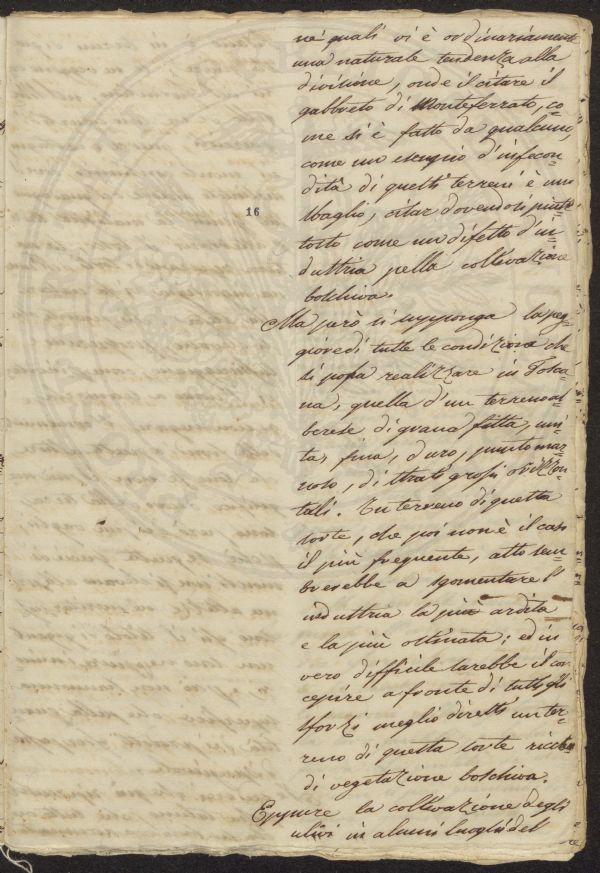 ne' quali vi è ordinariamente
una naturale tendenza alla
divisione, onde il citare il
gabbreto di Monteferrato, co=
me si è fatto da qualcuno,
come un esempio d'infecon=
dità di questi terreni è uno
sbaglio, citar dovendosi piut=
tosto come un difetto d'in=
dustria nella coltivazione
boschiva.
16
Ma però si supponga la peg=
giore di tutte le condizioni che
si possa realizzare in Tosca=
na, quella d'un terreno al=
berese di grana fitta, uni=
ta, fina, duro, punto mar=
noso, di strati grossi orizzon=
tali. Un terreno di questa
sorte, che poi non è il caso
il più frequente, atto sem=
brerebbe a sgomentare l'
industria la più ardita
e la più ostinata; ed in
vero difficile sarebbe il con=
cepire a fronte di tutti gli
sforzi meglio diretti un ter=
reno di questa sorte
di vegetazione boschiva.
Eppure la coltivazione degli
ulivi in alcuni luoghi del